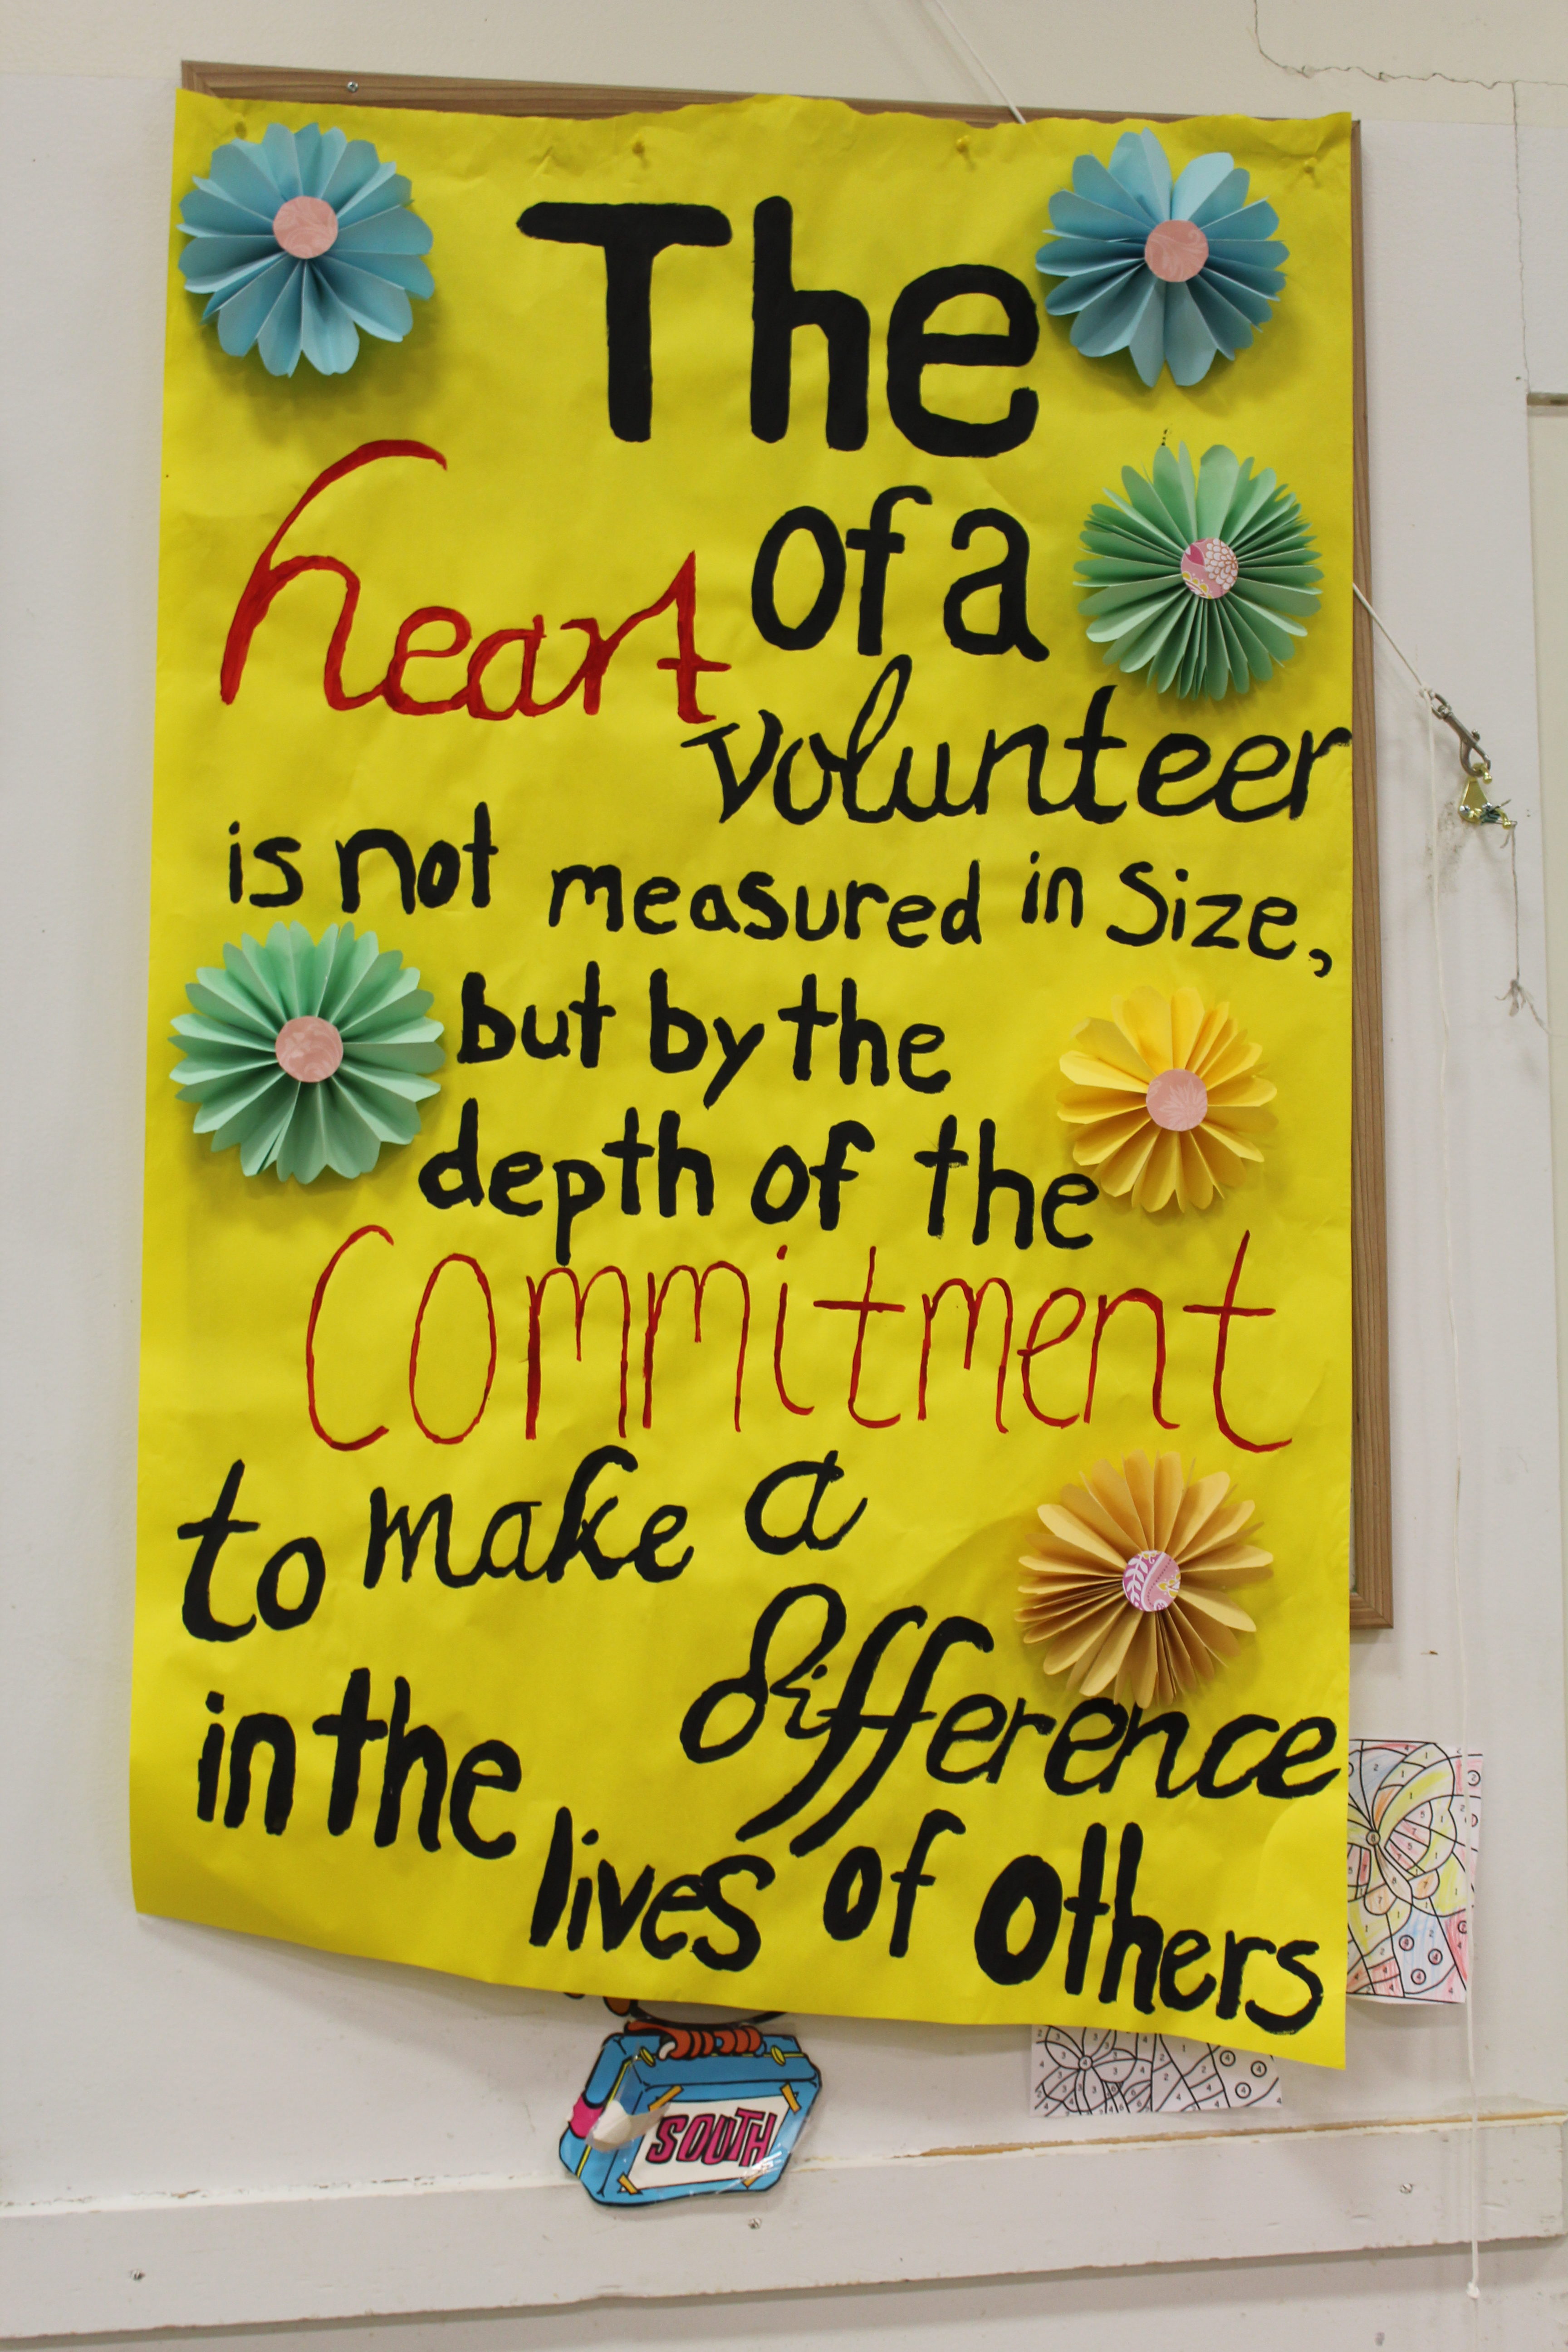 The
heart of a
volunteer
is not measured in size,
but by the
depth of the
Commitment
to make a
difference
in the
lives of others
SOUTH